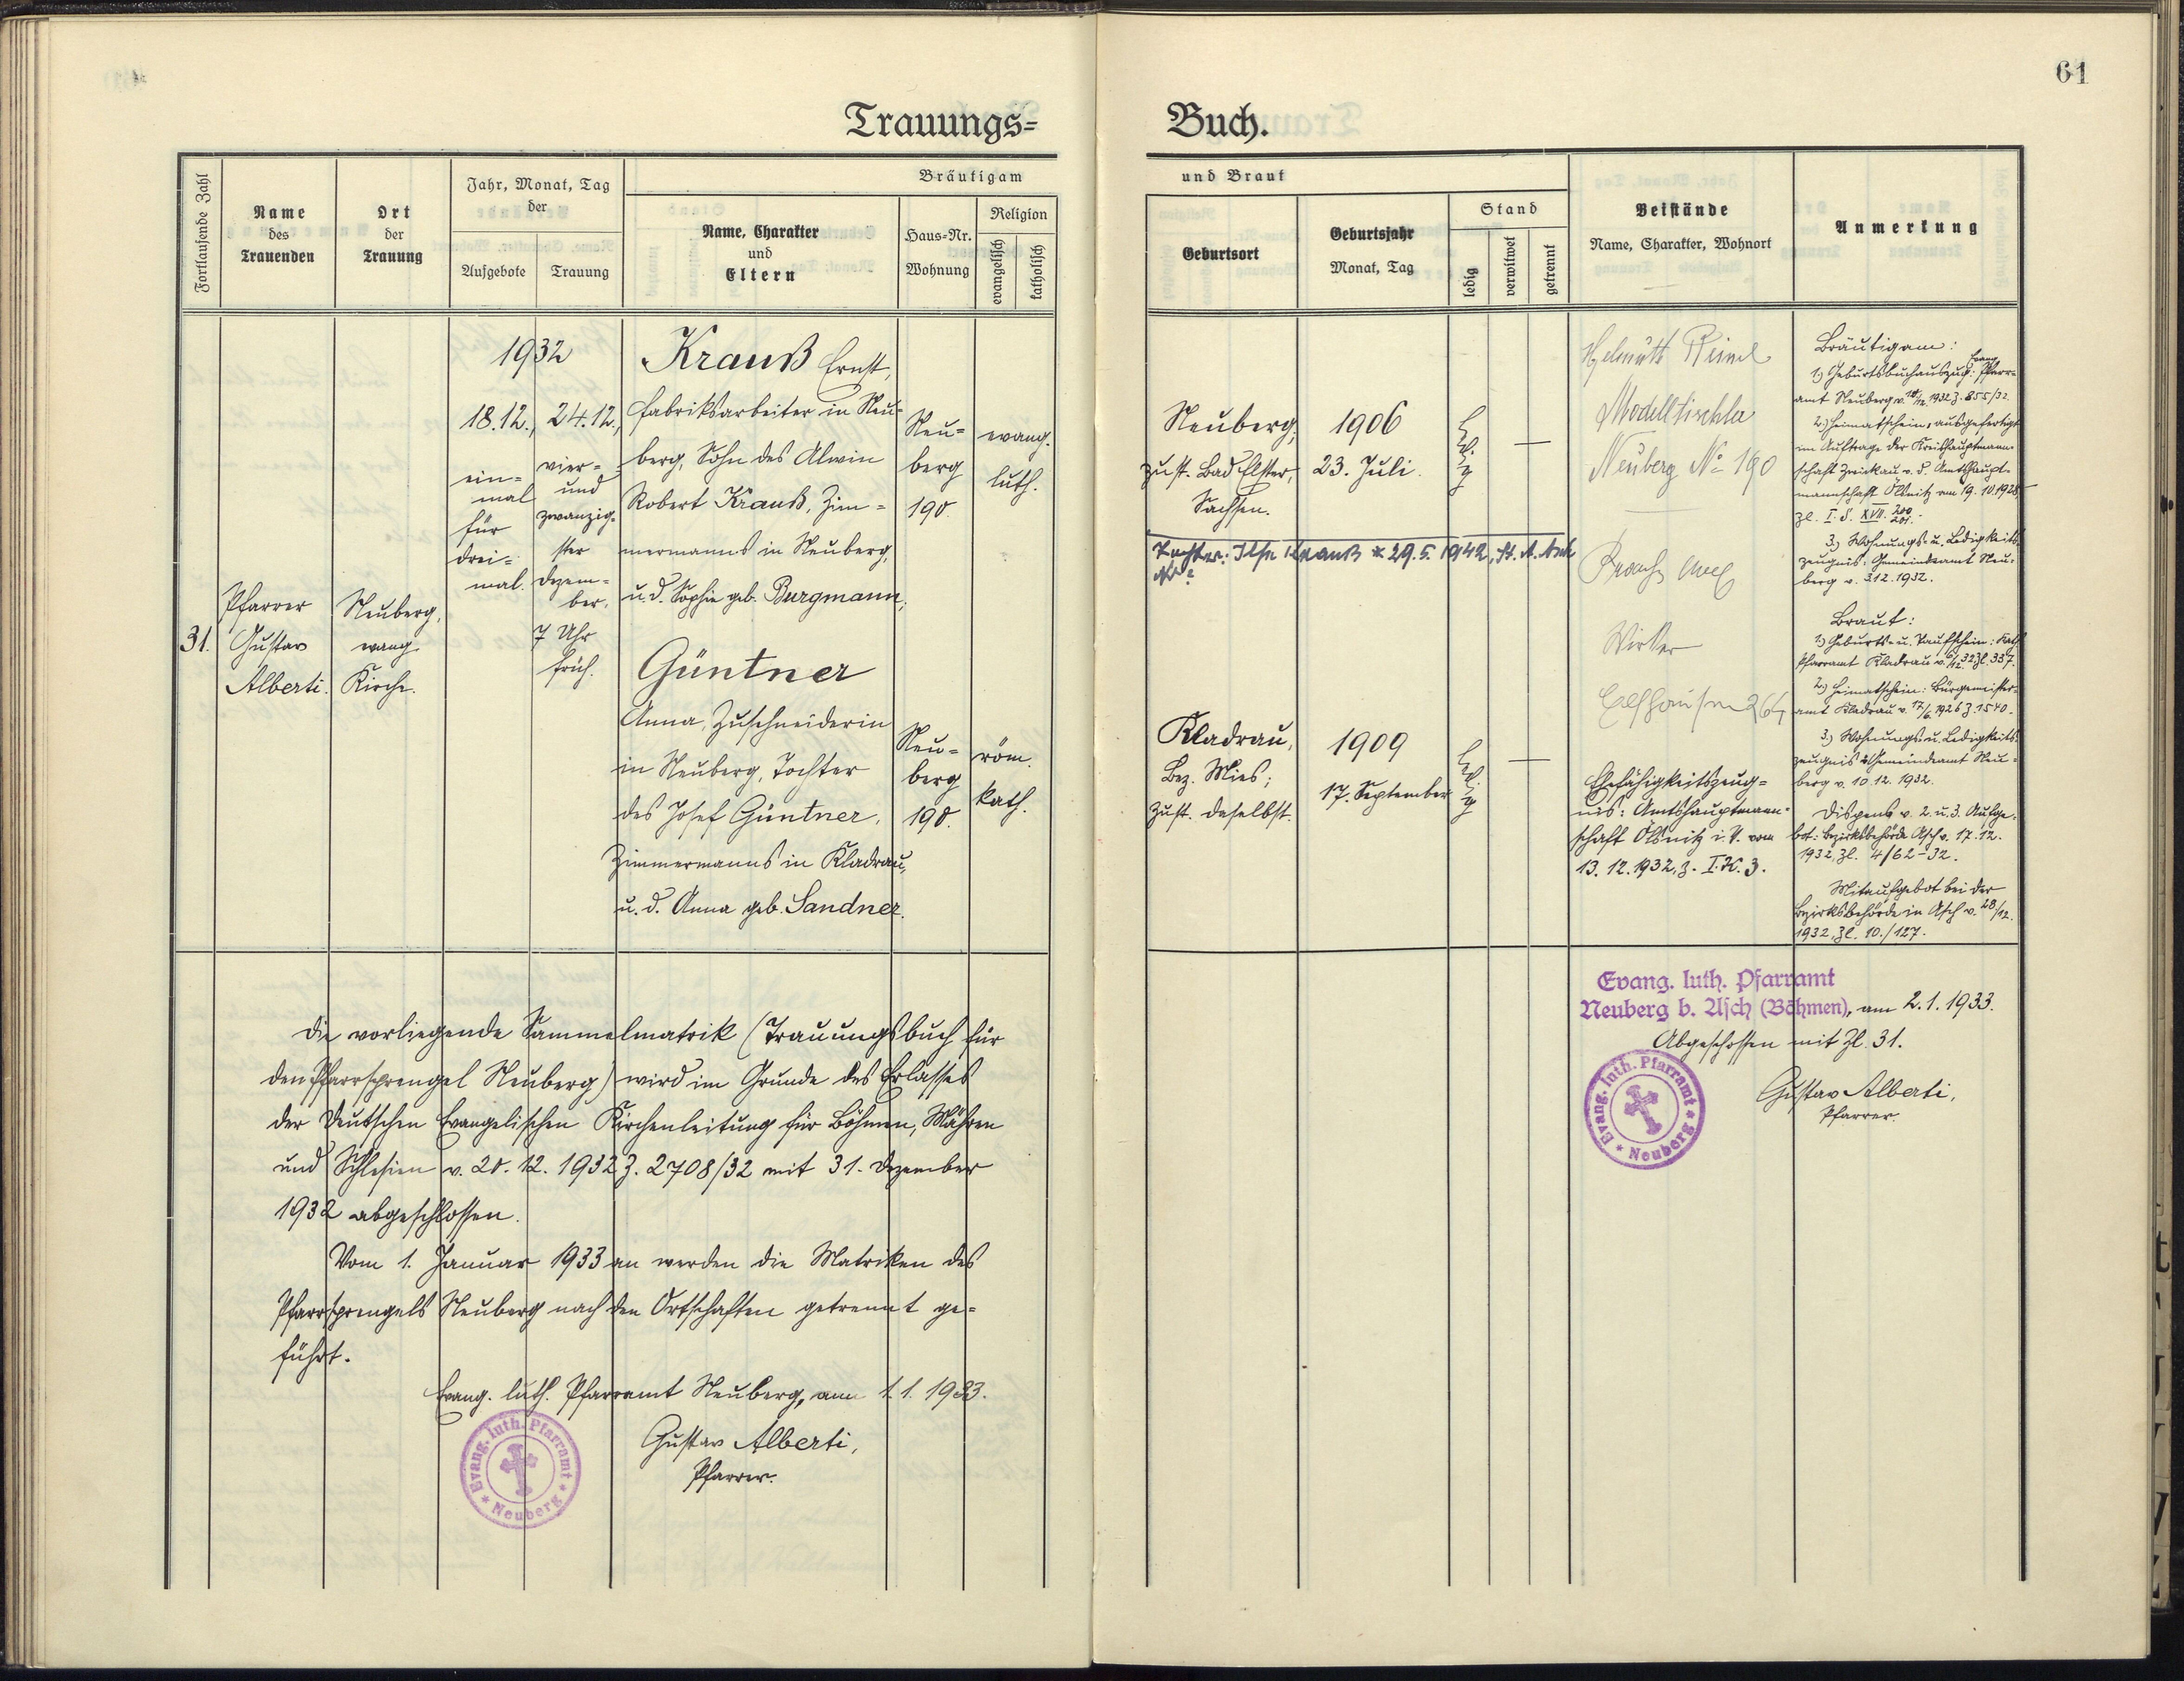 61
Trauungs=
Buch.
Fortlaufende Zahl
Name
des
Trauenden
Ort
der
Trauung
Jahr, Monat, Tag
der
Aufgebote
Trauung
Bräutigam
Name, Charakter
und
Eltern
Haus-Nr.
Wohnung
Religion
evangelisch
katholisch
und Braut
Geburtsort
Geburtsjahr
Monat, Tag
Stand
ledig
verwitwet
getrennt
Beistände
Name, Charakter, Wohnort
Anmerkung
31.
Pfarrer
Gustav
Alberti.
Neuberg,
evang.
Kirche.
1932
18.12.,
ein=
mal
für
drei=
mal.
24.12.,
vier=
und
zwanzig=
ster
Dezem=
ber,
7 Uhr
früh.
Krauß Ernst,
Fabriksarbeiter in Neu=
berg, Sohn des Alwin
Robert Krauß, Zim=
mermanns in Neuberg,
u. d. Sophie geb. Burgmann;
Neu=
berg
190.
evang.
luth.
Güntner
Anna, Zuschneiderin
in Neuberg, Tochter
des Josef Güntner,
Zimmermanns in Kladrau,
u. d. Anna geb. Sandner.
Neu=
berg
190.
röm.
kath.
Neuberg,
zust. Bad Elster,
Sachsen.
1906
23. Juli.
ledig
—
Tochter: Ilse Krauß * 29.5.1942, St. A. Asch
Kladrau,
Bez. Mies;
zust. daselbst.
1909
17. September
ledig
—
Helmuth
Modelltischler
Neuberg No 190
Wirker
Ehefähigkeitszeug=
nis: Amtshauptmann=
schaft Ölsnitz i. V. vom
13.12.1932, Z. I.K.3.
Bräutigam:
1.) Geburtsbuchauszug: Evang. Pfarr=
amt Neuberg v. 1932 Z. 855/32.
2.) Heimatschein, ausgefertigt
im Auftrage der Kreishauptmann=
schaft Zwickau v. d. Amtshaupt=
mannschaft Ölsnitz am 19.10.1928,
Zl. I. S. XVII. 200
201.
3.) Wohnungs- u. Ledigkeits=
zeugnis: Gemeindeamt Neu=
berg v. 3.12.1932.
Braut:
1.) Geburts- u. Taufschein: Kath.
Pfarramt Kladrau v. 32 Zl. 337.
2.) Heimatschein: Bürgermeister=
amt Kladrau v. 17/6. 1926 Z. 1540.
3.) Wohnungs- u. Ledigkeits=
zeugnis: Gemeindeamt Neu=
berg v. 10.12.1932.
Dispens v. 2. u. 3. Aufge=
bot: Bezirksbehörde Asch v. 17.12.
1932, Zl. 4/62-32.
Mitaufgebot bei der
Bezirksbehörde in Asch v. 28/12.
1932, Zl. 10./127.
Die vorliegende Sammelmatrik (Trauungsbuch für
den Pfarrsprengel Neuberg) wird im Grunde des Erlasses
der Deutschen Evangelischen Kirchenleitung für Böhmen, Mähren
und Schlesien v. 20.12.1932 Z. 2708/32 mit 31. Dezember
1932 abgeschlossen.
Vom 1. Januar 1933 an werden die Matriken des
Pfarrsprengels Neuberg nach den Ortschaften getrennt ge=
führt.
Evang. luth. Pfarramt Neuberg, am 1.1.1933.
Gustav Alberti,
Pfarrer.
Evang. luth. Pfarramt
Neuberg
Evang. luth. Pfarramt
Neuberg b. Asch (Böhmen), am 2.1.1933.
Abgeschlossen mit Zl. 31.
Gustav Alberti,
Pfarrer.
Evang. luth. Pfarramt
Neuberg